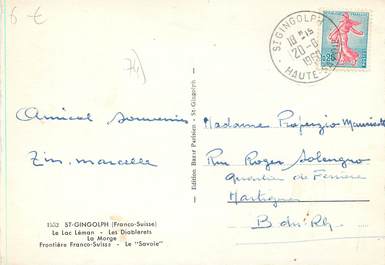 6 €
74)
ST GINGOLPH
18H15
20-8
1960
HAUTE-
0,20
Amical souvenir
Zin. marcelle
Madame Profenzio Mauricette
Rue Roger Salengro
Quartier de Ferrière
Martigues
B du Rh.
Edition Bazar Parisien - St-Gingolph
1532 ST-GINGOLPH (Franco-Suisse)
Le Lac Léman - Les Diablerets
La Morge
Frontière Franco-Suisse - Le "Savoie"